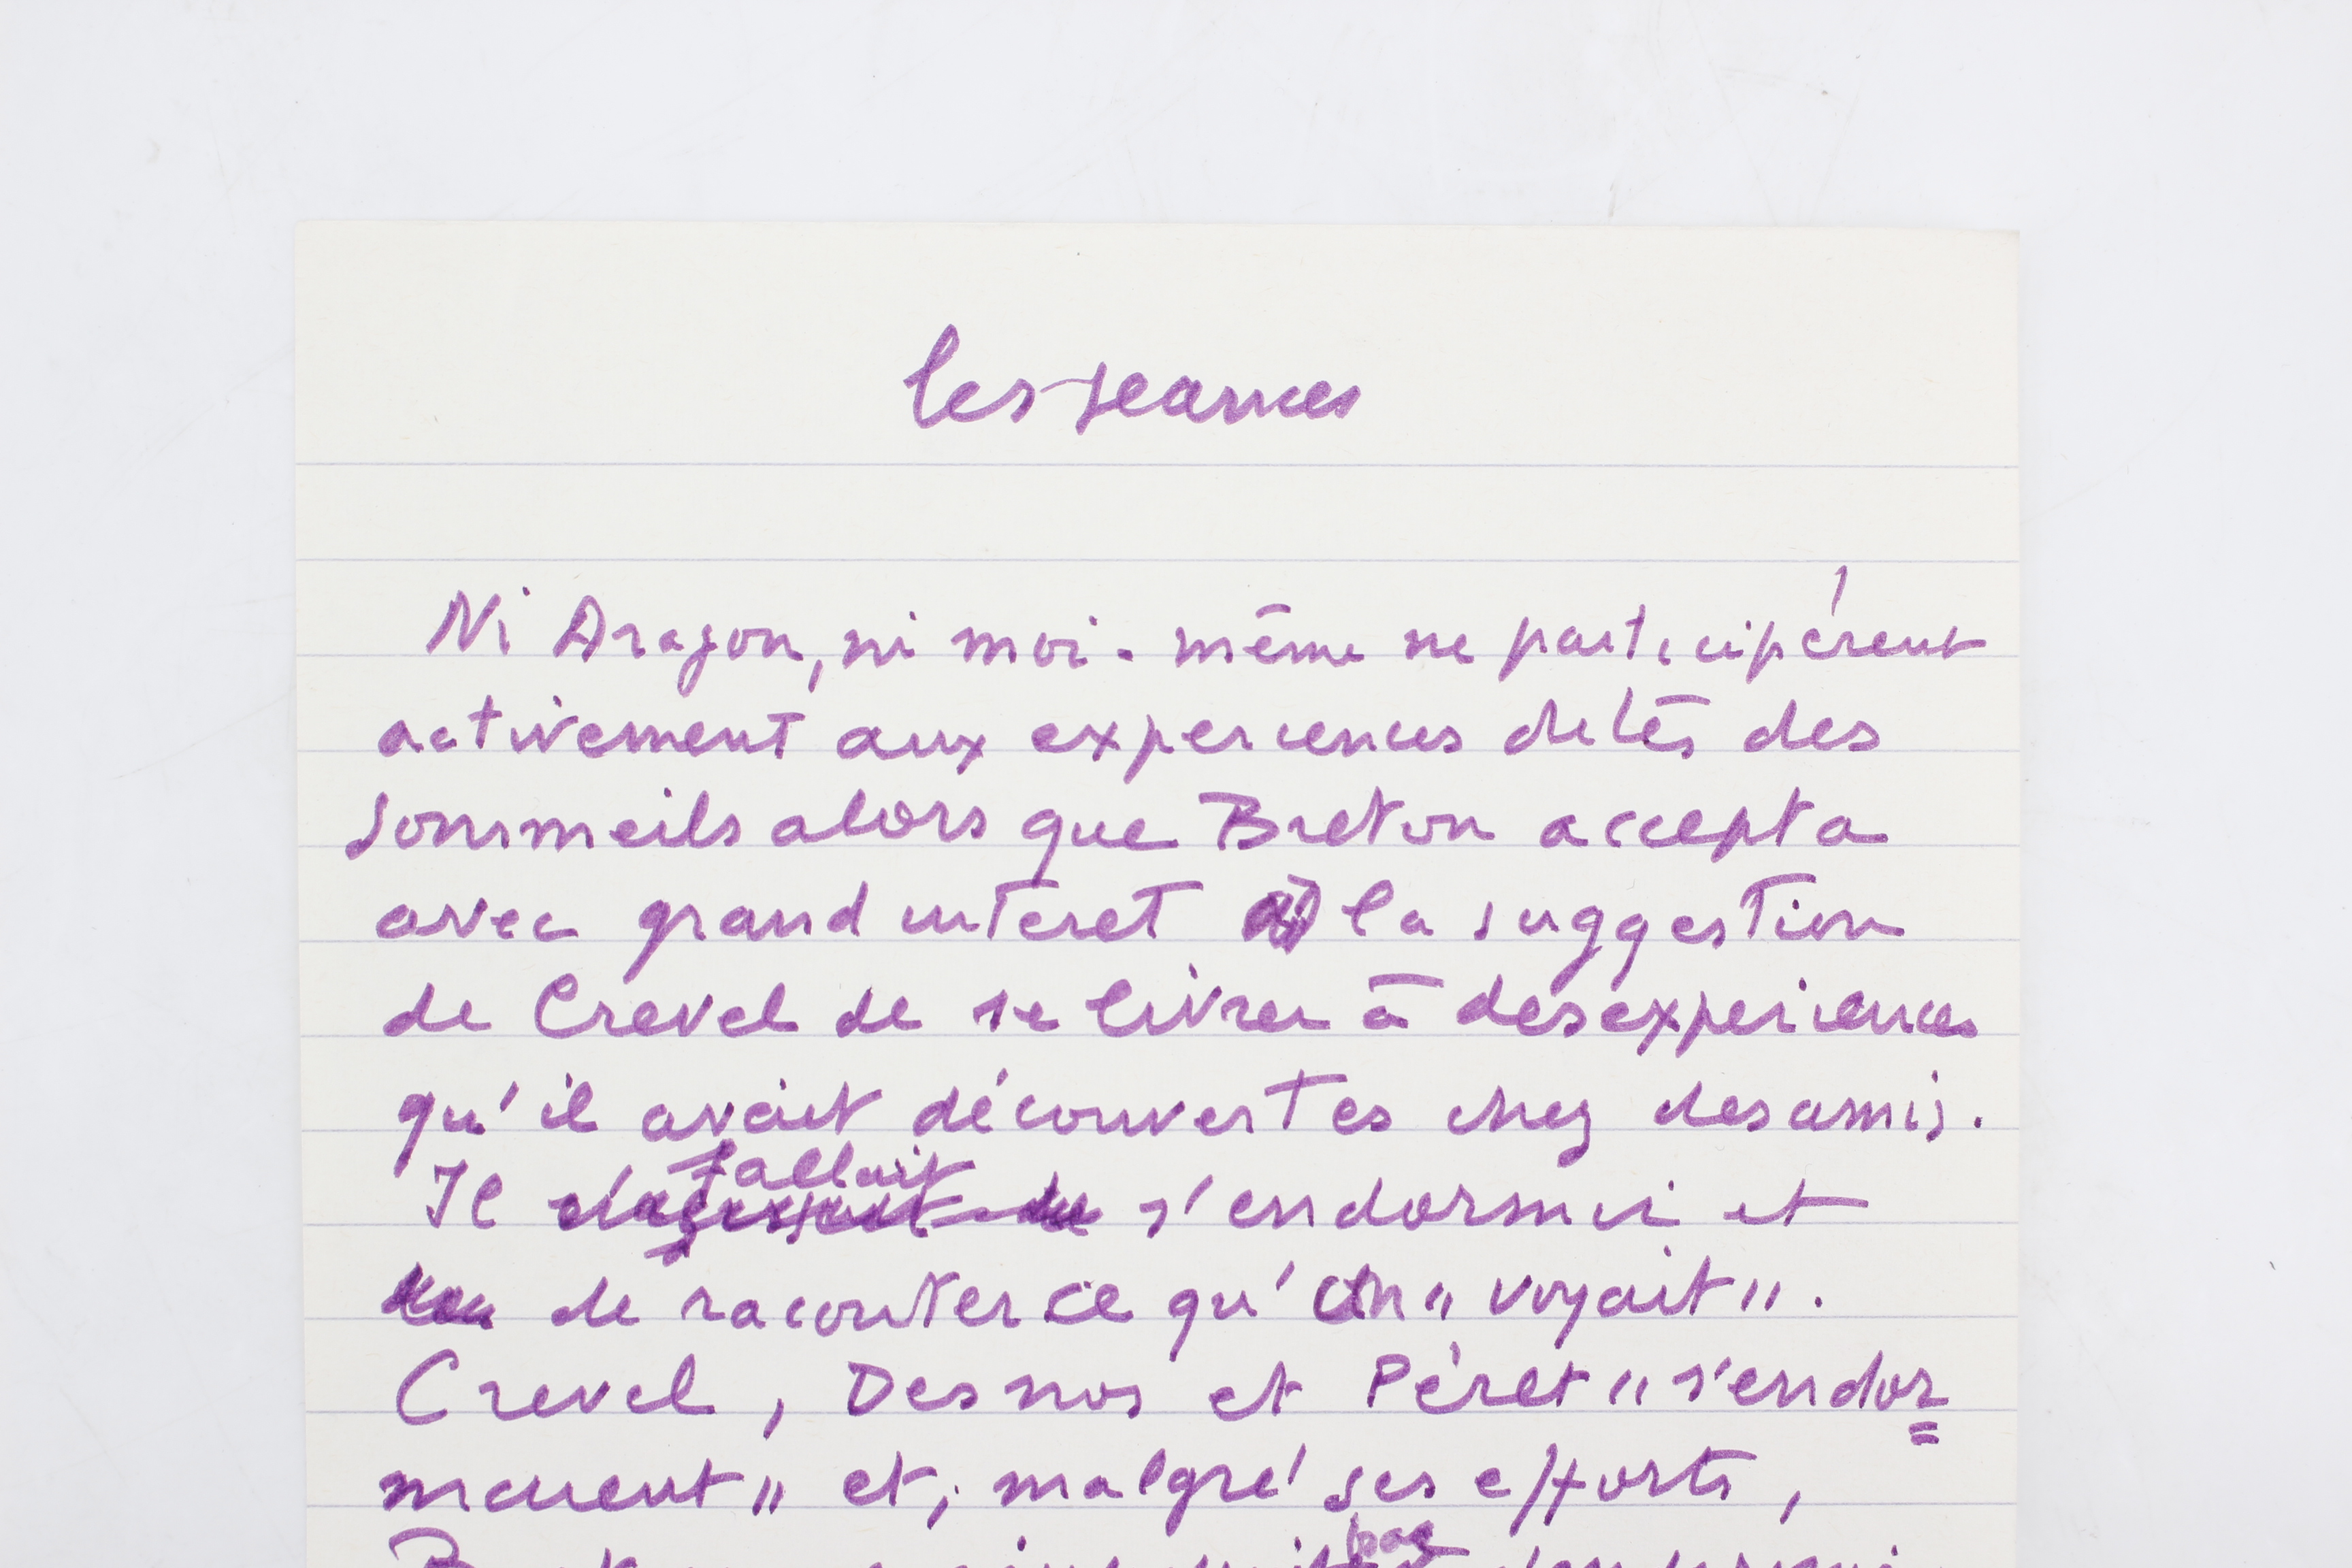 les seances
Ni Aragon, ni moi-même ne participèrent
activement aux experiences dites des
sommeils alors que Breton accepta
avec grand interet la suggestion
de Crevel de se livrer à des experiences
qu'il avait découvertes chez des amis.
fallait
Il s'agissait de s'endormir et
de raconter ce qu'on "voyait".
Crevel, Desnos et Péret "s'endor=
maient" et, malgré ses efforts,
pas